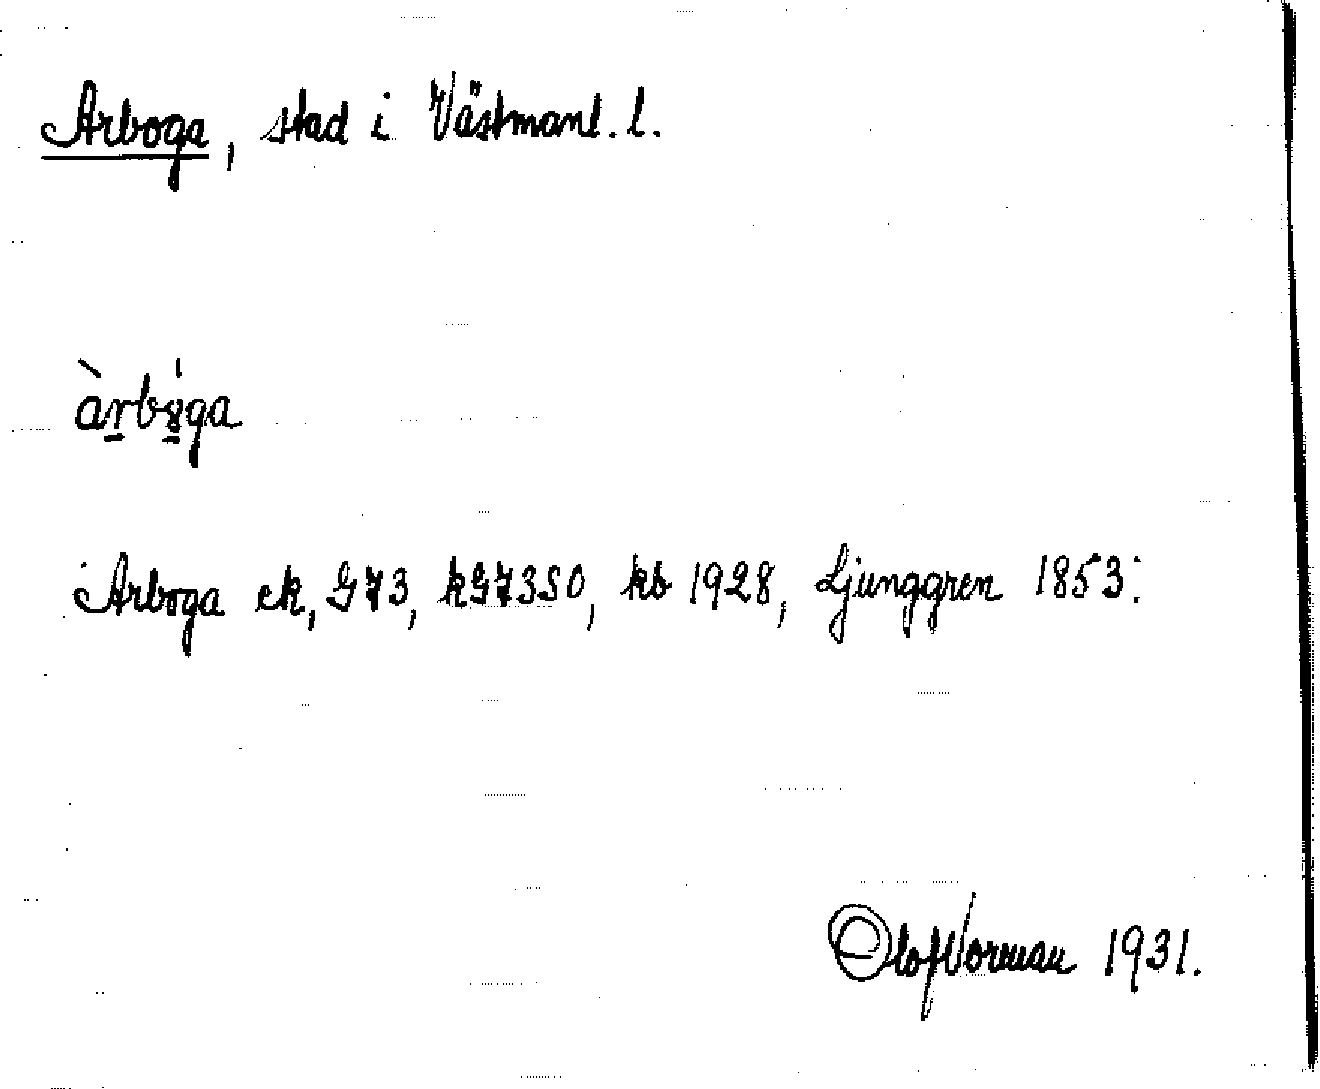 Arboga, stad i Västmanl. l.
àrbo̤ga
Arboga ek, G73, kG73SO, kb 1928, Ljunggren 1853.
Olof Vorman 1931.